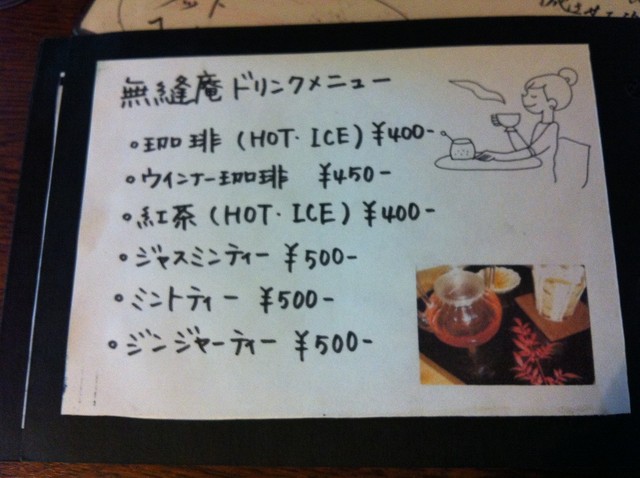 無縫庵ドリンクメニュー
・珈琲(HOT・ICE)¥400-
・ウインナー珈琲 ¥450-
・紅茶(HOT・ICE)¥400-
・ジャスミンティー ¥500-
・ミントティー ¥500-
・ジンジャーティー ¥500-